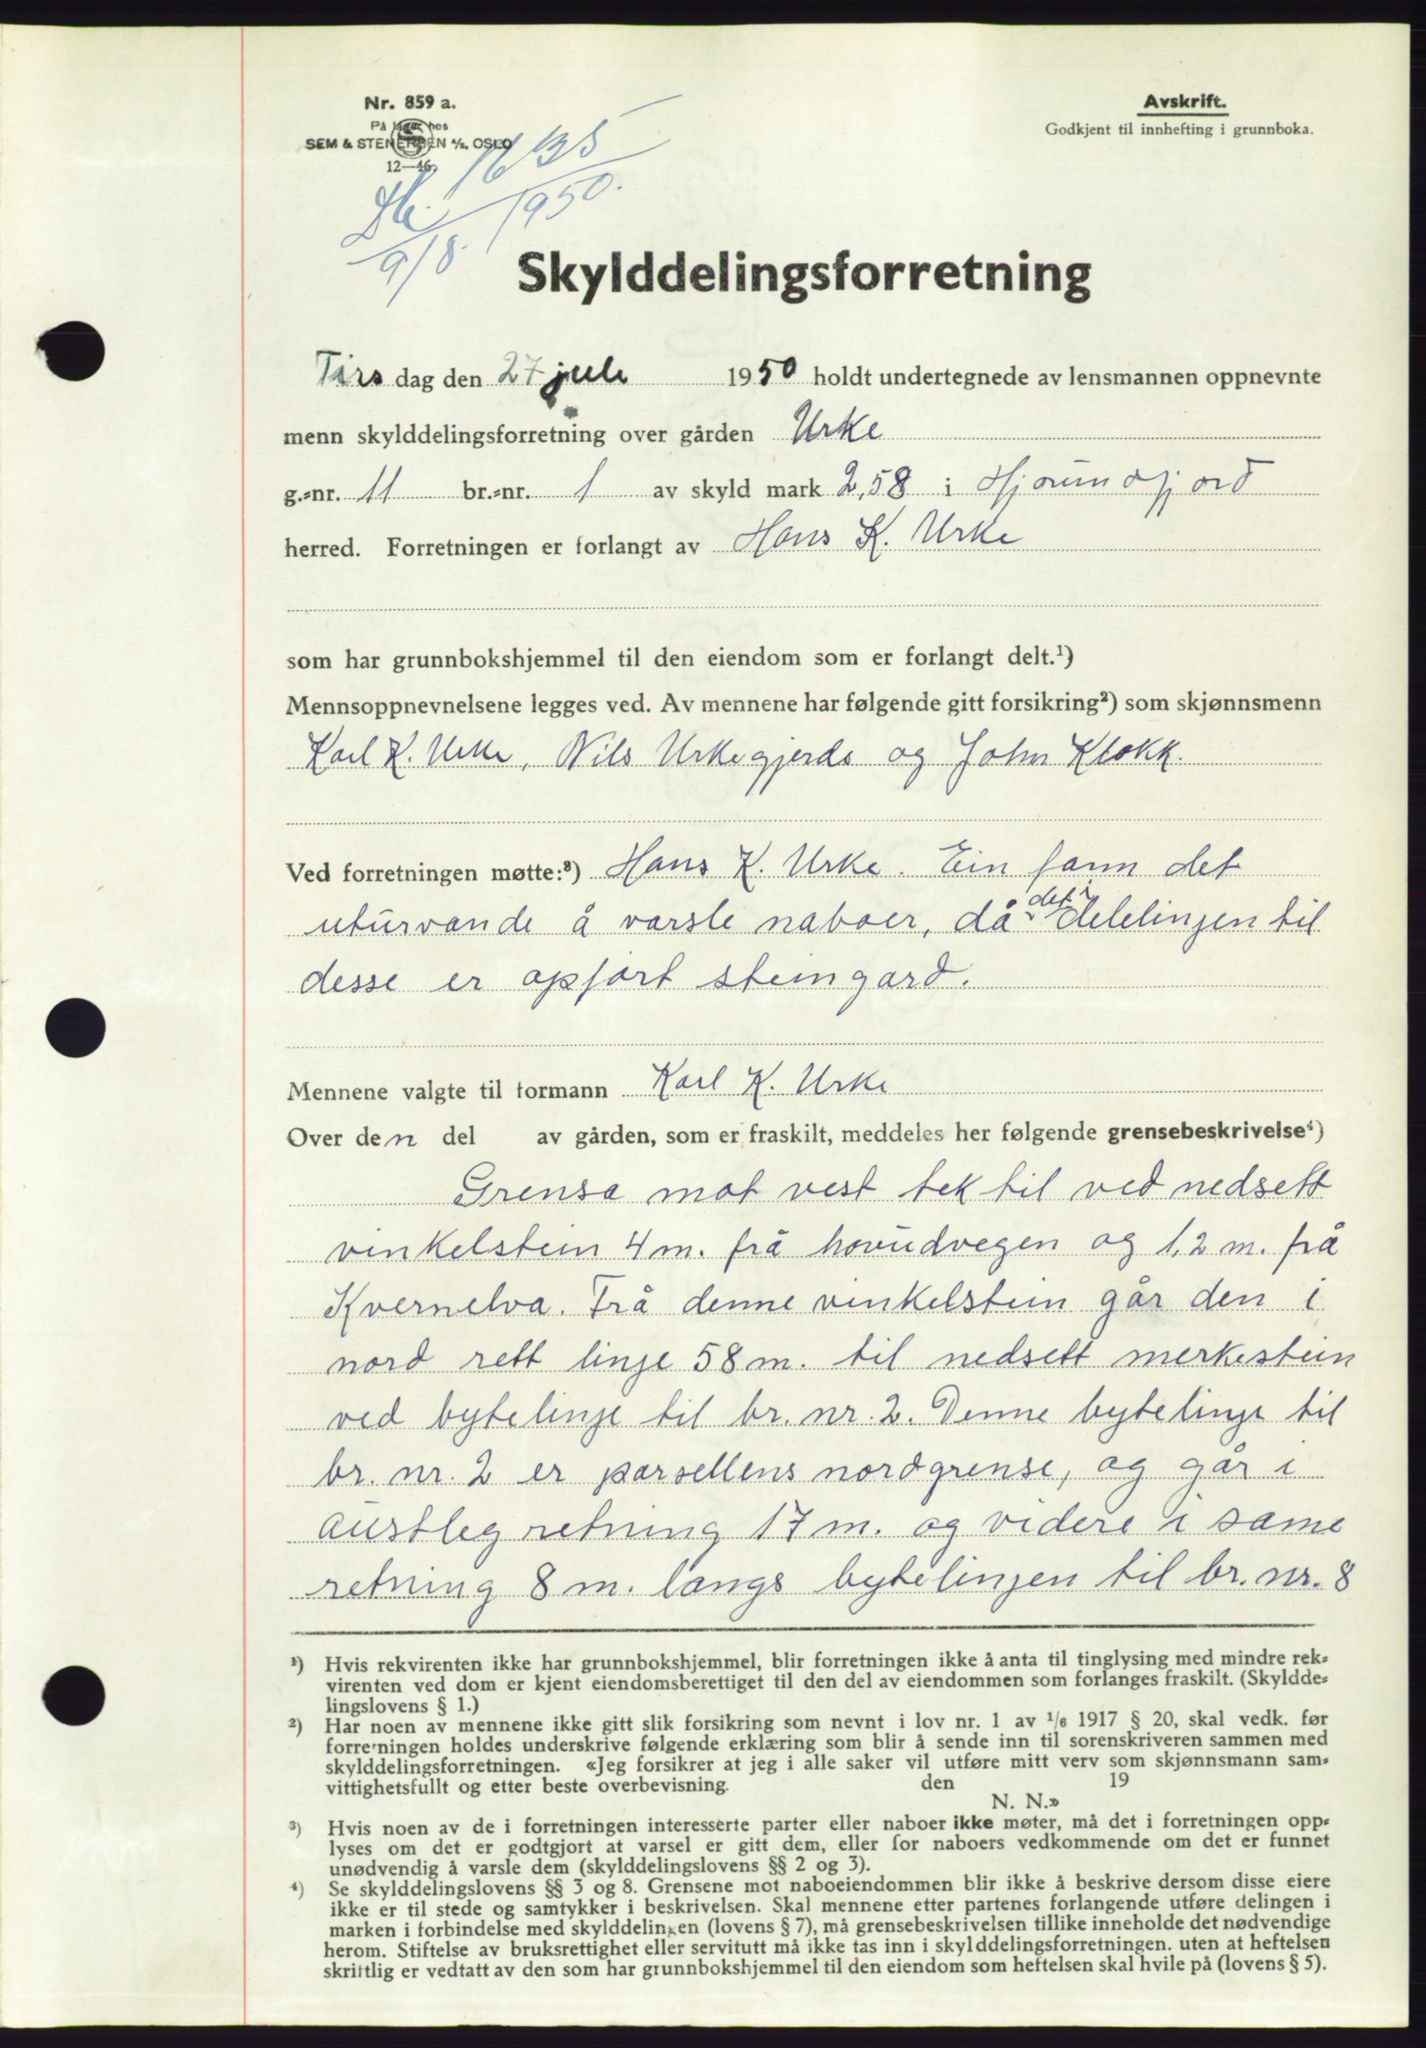 Nr. 859 a.
På lager hos
SEM & STENERSEN A/S, OSLO
12—46.
Avskrift.
Godkjent til innhefting i grunnboka.
1635
1950.
9/8
Skylddelingsforretning
Tirs dag den 27 juli 1950 holdt undertegnede av lensmannen oppnevnte
menn skylddelingsforretning over gården Urke
g.-nr. 11 br.-nr. 1 av skyld mark 2,58 i Hjørundfjord
herred. Forretningen er forlangt av Hans K. Urke
som har grunnbokshjemmel til den eiendom som er forlangt delt.¹)
Mennsoppnevnelsene legges ved. Av mennene har følgende gitt forsikring²) som skjønnsmenn
Karl K. Urke, Nils Urkegjerde og John Klokk.
Ved forretningen møtte:³) Hans K. Urke. Ein fann det
uturvande å varsle naboer, då det i delelinjen til
desse er opført steingard.
Mennene valgte til formann Karl K. Urke
Over den del av gården, som er fraskilt, meddeles her følgende grensebeskrivelse⁴)
Grensa mot vest tek til ved nedsett
vinkelstein 4 m. frå hovudvegen og 1,2 m. frå
Kvernelva. Frå denne vinkelstein går den i
nord rett linje 58 m. til nedsett merkestein
ved bytelinje til br. nr. 2. Denne bytelinje til
br. nr. 2 er parsellens nordgrense, og går i
austleg retning 17 m. og videre i same
retning 8 m. langs bytelinjen til br. nr. 8
¹) Hvis rekvirenten ikke har grunnbokshjemmel, blir forretningen ikke å anta til tinglysing med mindre rek-
virenten ved dom er kjent eiendomsberettiget til den del av eiendommen som forlanges fraskilt. (Skyldde-
lingslovens § 1.)
²) Har noen av mennene ikke gitt slik forsikring som nevnt i lov nr. 1 av 1/6 1917 § 20, skal vedk. før
forretningen holdes underskrive følgende erklæring som blir å sende inn til sorenskriveren sammen med
skylddelingsforretningen. «Jeg forsikrer at jeg i alle saker vil utføre mitt verv som skjønnsmann sam-
vittighetsfullt og etter beste overbevisning. den 19
N. N.»
³) Hvis noen av de i forretningen interesserte parter eller naboer ikke møter, må det i forretningen opp-
lyses om det er godtgjort at varsel er gitt dem, eller for naboers vedkommende om det er funnet
unødvendig å varsle dem (skylddelingslovens §§ 2 og 3).
⁴) Se skylddelingslovens §§ 3 og 8. Grensene mot naboeiendommen blir ikke å beskrive dersom disse eiere
ikke er til stede og samtykker i beskrivelsen. Skal mennene etter partenes forlangende utføre delingen i
marken i forbindelse med skylddelingen (lovens § 7), må grensebeskrivelsen tillike inneholde det nødvendige
herom. Stiftelse av bruksrettighet eller servitutt må ikke tas inn i skylddelingsforretningen. uten at heftelsen
skriftlig er vedtatt av den som har grunnbokshjemmel til den eiendom som heftelsen skal hvile på (lovens § 5).